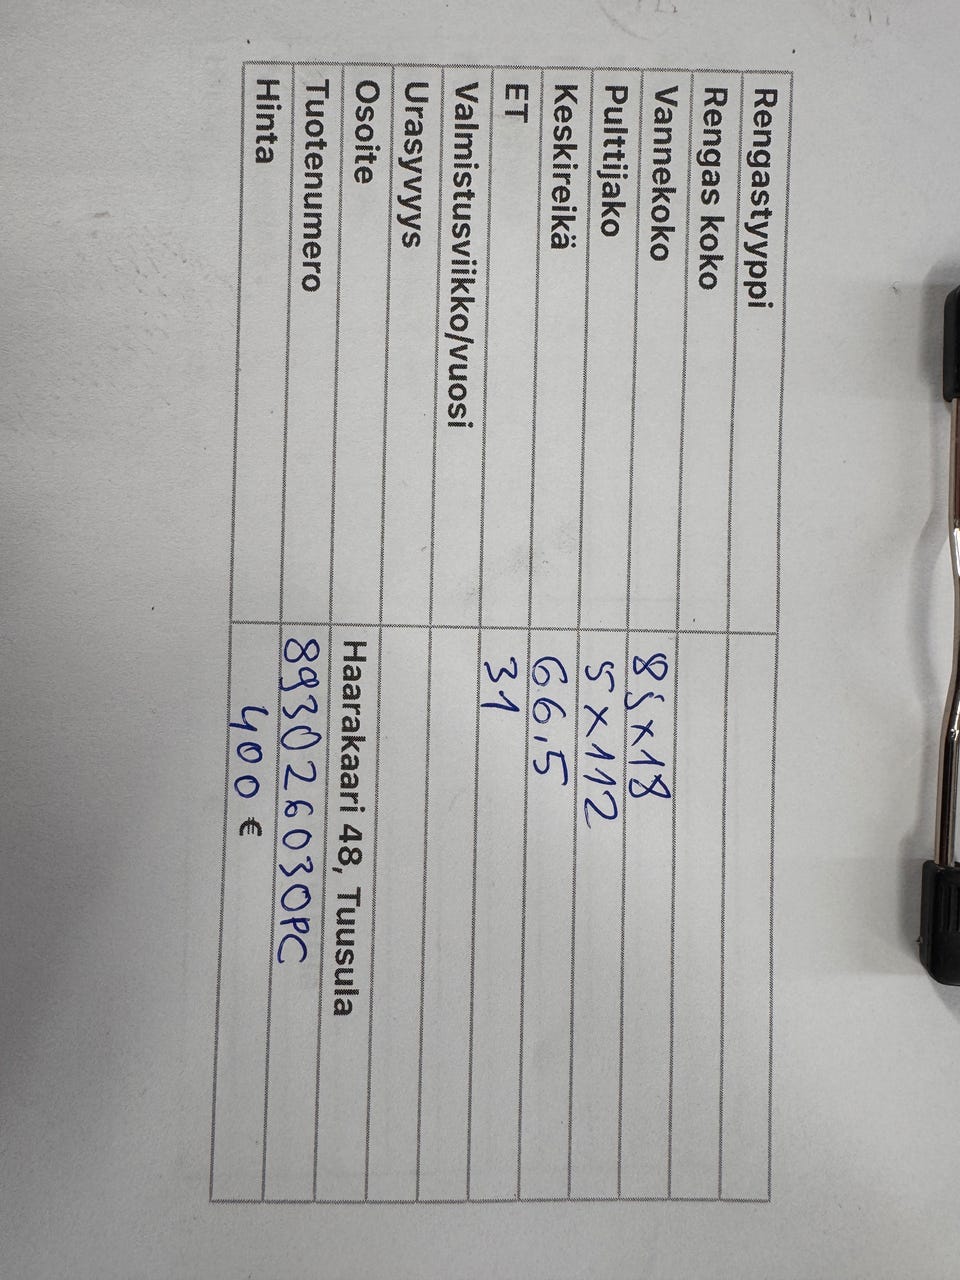 Rengastyyppi
Rengas koko
Vannekoko 8,5x18
Pulttijako 5x112
Keskireikä 66,5
ET 31
Valmistusviikko/vuosi
Urasyvyys
Osoite Haarakaari 48, Tuusula
Tuotenumero 893026030PC
Hinta 400 €